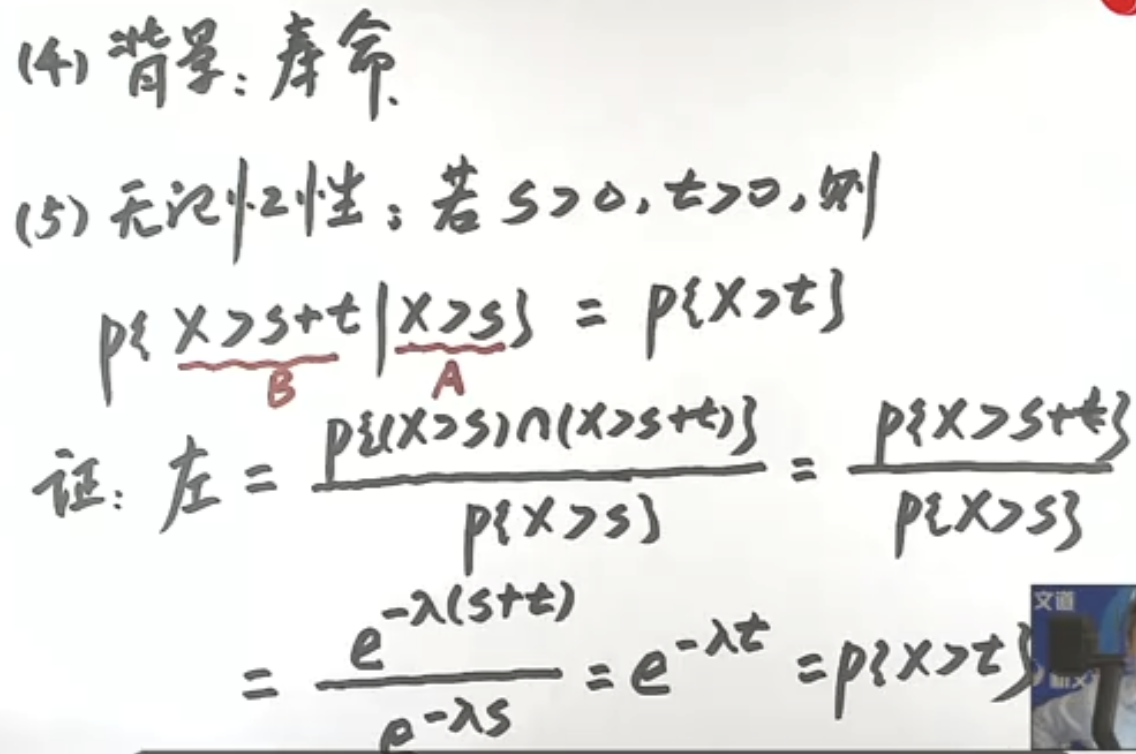 (4) 背景: 寿命.
(5) 无记忆性: 若 s>0, t>0, 则
P{X>s+t|X>s} = P{X>t}
B A
证: 左 = P{(X>s)∩(X>s+t)} / P{X>s} = P{X>s+t} / P{X>s}
= e^{-λ(s+t)} / e^{-λs} = e^{-λt} = P{X>t}
文道